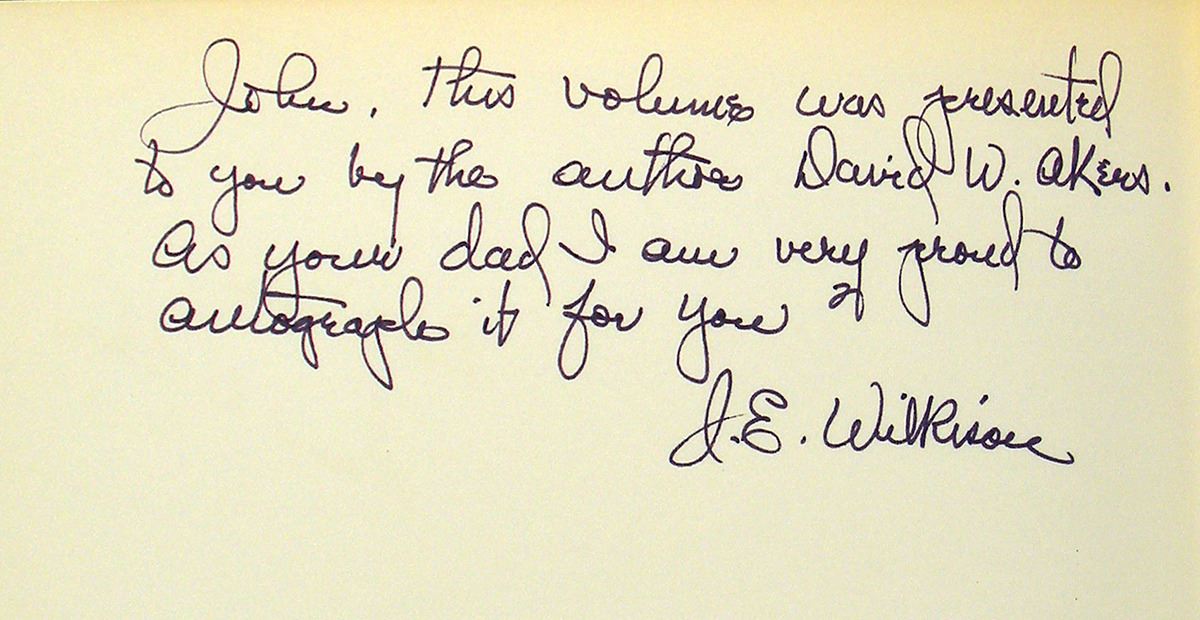 John, This volume was presented
to you by the author David W. Akers.
As your dad I am very proud to
autograph it for you
J.E. Wilkison